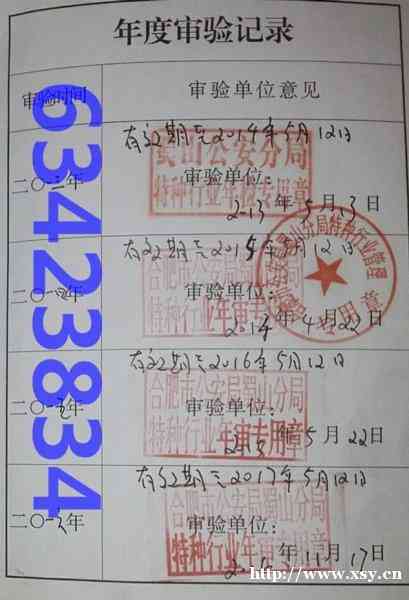 年度审验记录
审验时间
审验单位意见
63423834
有效期至2014年5月12日
公安分局
特种行业年审专用章
二〇一三年
审验单位:
2013年5月13日
有效期至2015年5月12日
合肥市公安局蜀山分局
特种行业年审专用章
二〇一四年
审验单位:
2014年4月22日
有效期至2016年5月12日
合肥市公安局蜀山分局
特种行业年审专用章
二〇一五年
审验单位:
年5月22日
有效期至2017年5月12日
合肥市公安局蜀山分局
特种行业年审专用章
二〇一六年
审验单位:
年11月17日
http://www.xsy.cn